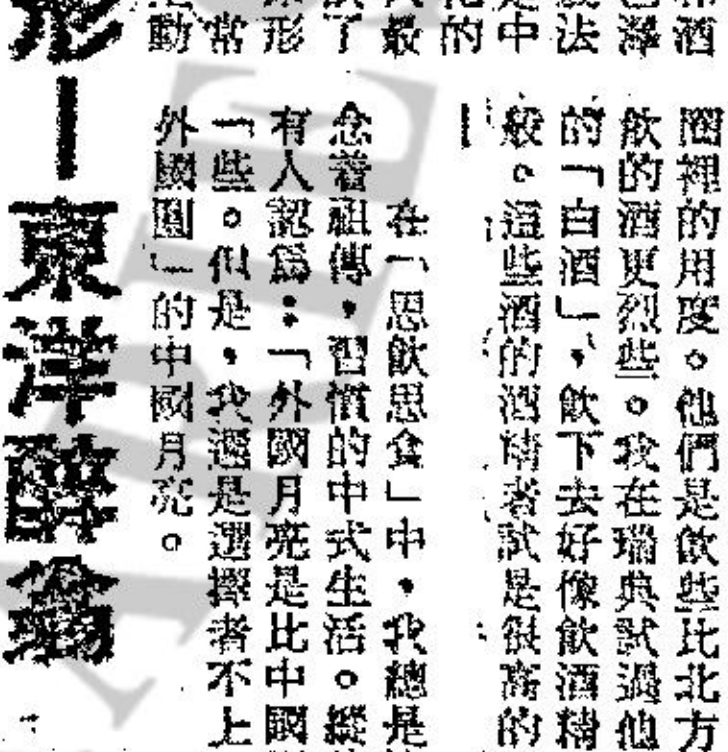 酒
澤
法
中
的
最
了
形
常
動
裡的用度。他們是飲些比北方
飲的酒更烈些。我在瑞典試過他
的「白酒」，飲下去好像飲酒精
般。這些酒的酒精者試是很高的
在「思飲思食」中，我總是
念着祖傳，習慣的中式生活。縱
有人認爲：「外國月亮是比中國
一些。但是，我還是選擇者不上
外國圓」的中國月亮。
形—東洋醉翁